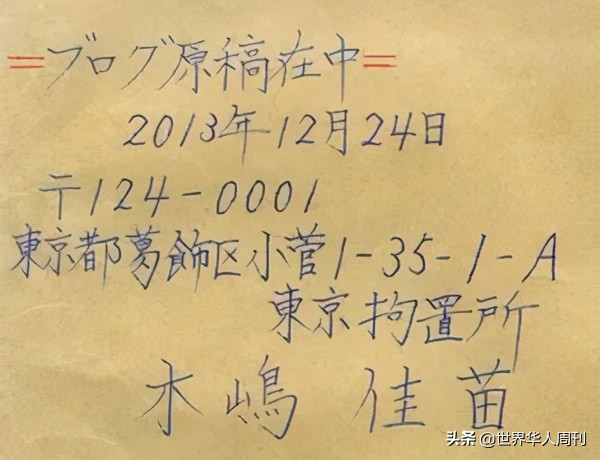 =ブログ原稿在中=
2013年12月24日
〒124-0001
東京都葛飾区小菅1-35-1-A
東京拘置所
木嶋佳苗
头条@世界华人周刊